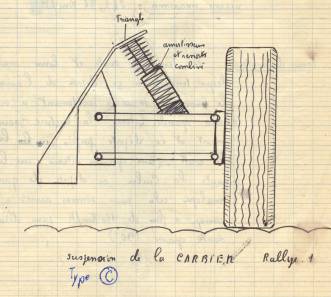 Triangle
amortisseur
et ressort
combiné
suspension de la CARRIER Rallye. 1
Type C